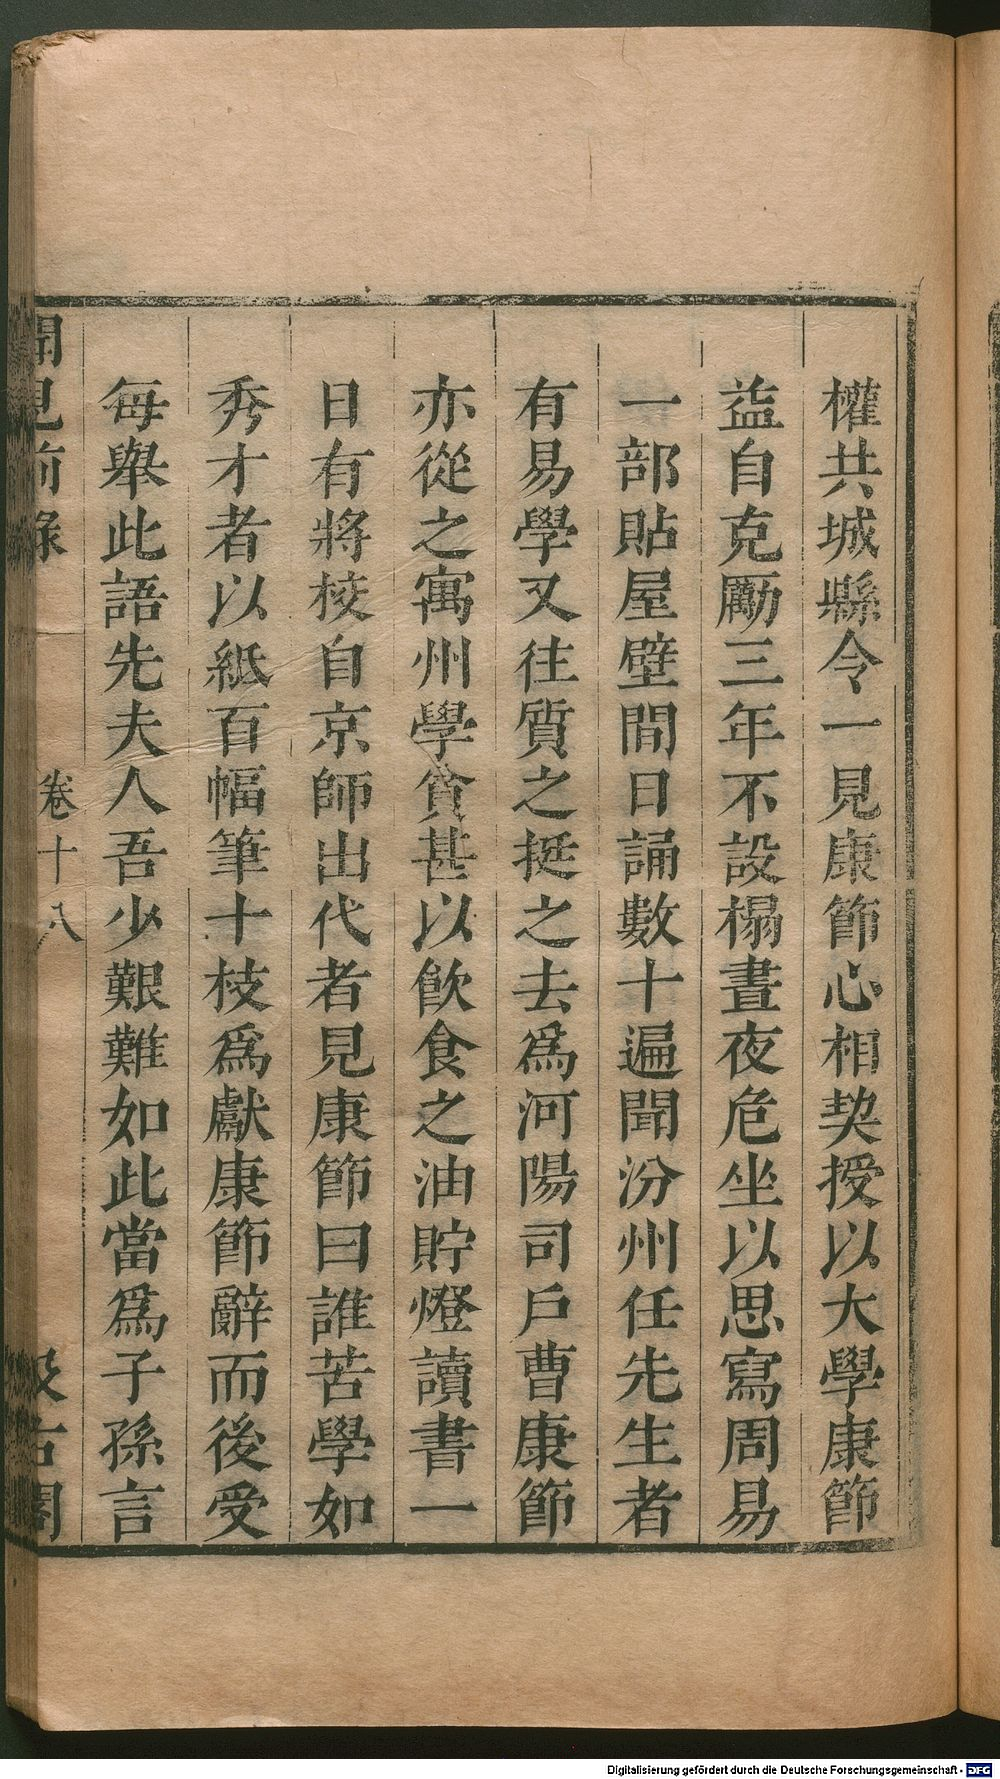 權共城縣令一見康節心相契授以大學康節
益自克勵三年不設榻晝夜危坐以思寫周易
一部貼屋壁間日誦數十遍聞汾州任先生者
有易學又往質之挺之去爲河陽司戶曹康節
亦從之寓州學貧甚以飲食之油貯燈讀書一
日有將校自京師出代者見康節曰誰苦學如
秀才者以紙百幅筆十枝爲獻康節辭而後受
每舉此語先夫人吾少艱難如此當爲子孫言
聞見前錄
卷十八
汲古閣
Digitalisierung gefördert durch die Deutsche Forschungsgemeinschaft - DFG